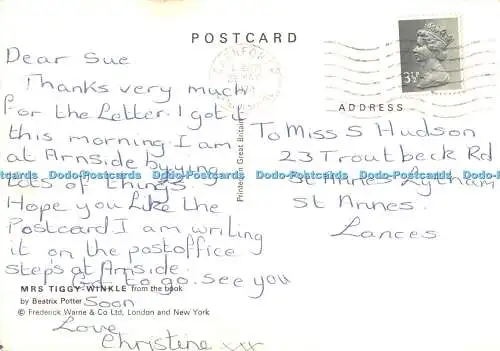 POSTCARD
Dear Sue
Thanks very much
for the Letter. I got it
this morning I am
at Arnside buying
Lots of things.
Hope you Like the
Postcard I am writing
it on the postoffice
steps at Arnside.
Got to go. see you
Soon
Love
Christine xx
MRS TIGGY-WINKLE from the book
by Beatrix Potter
© Frederick Warne & Co Ltd, London and New York
Printed in Great Britain
3½P
ADDRESS
To Miss S Hudson
23 Troutbeck Rd
St Annes Lytham
St Annes.
Lances
Dodo-Postcards Dodo-Postcards Dodo-Postcards Dodo-Postcards